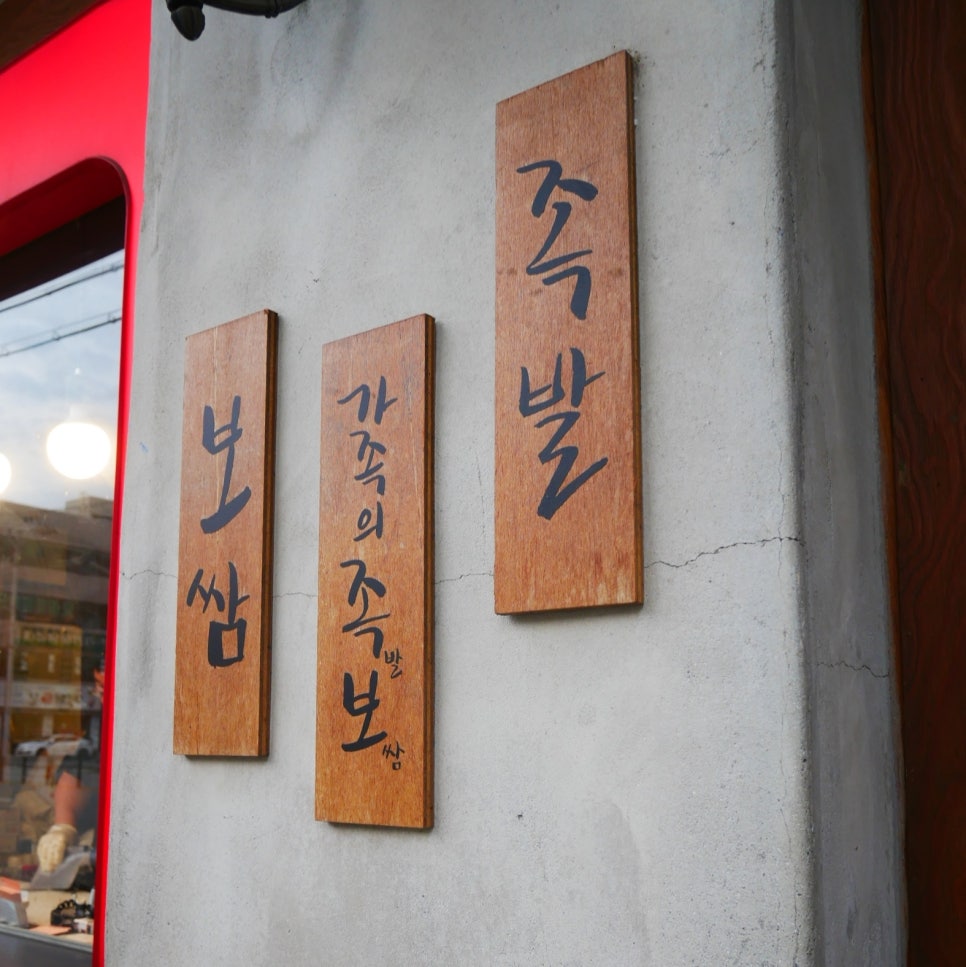 보쌈
가족의 족발 보쌈
족발